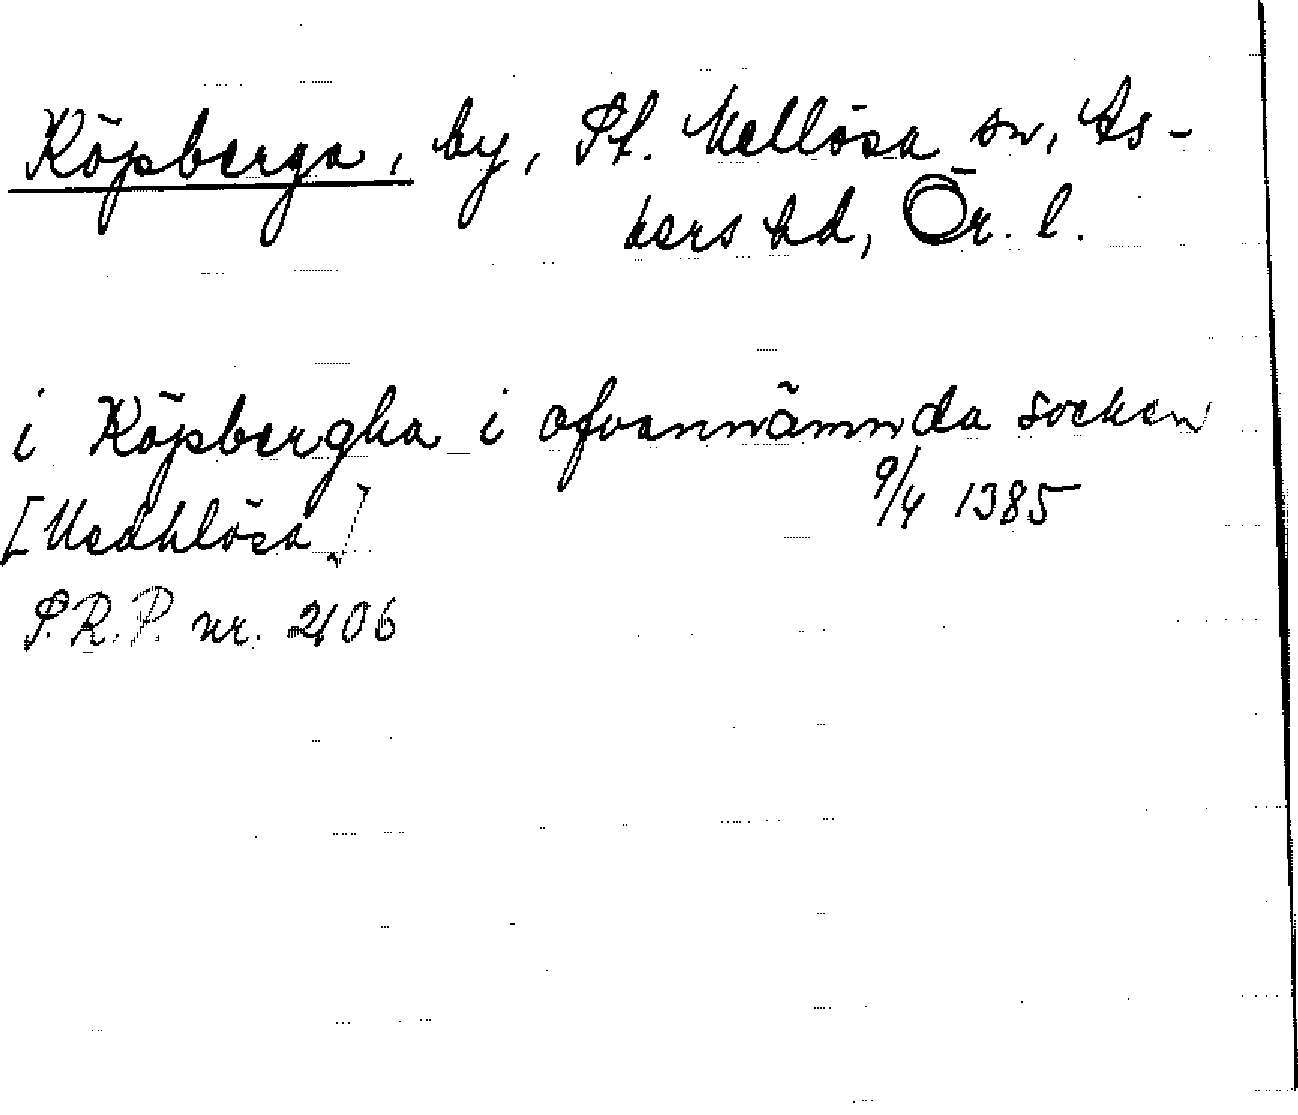 Köpberga, by, St. Mellösa sn, As-
kers hd, Ör. l.
i Köpbergha i ofvannämnda socken
[Medhlösa] 9/4 1385
S.R.P. nr. 2106